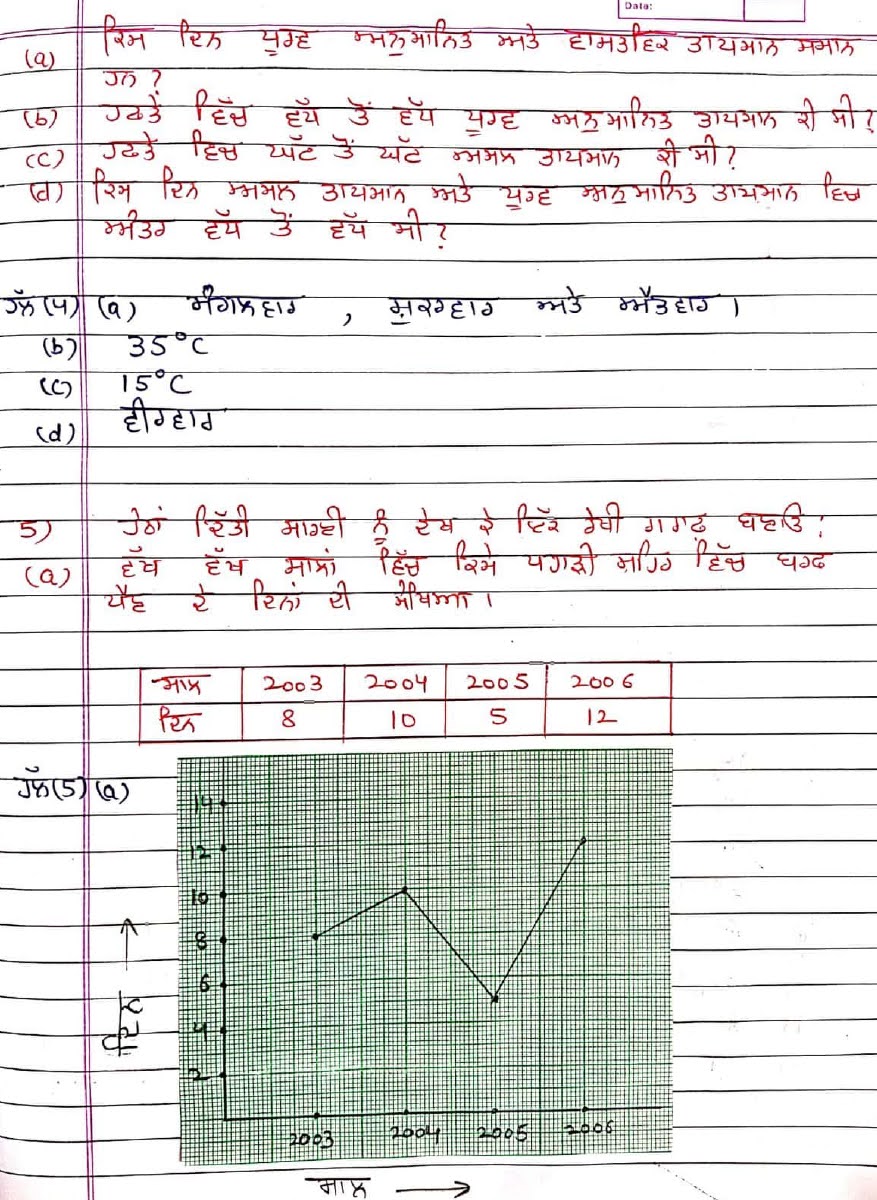 Date:
(a) ਕਿਸ ਦਿਨ ਪੂਰਵ ਅਨੁਮਾਨਿਤ ਅਤੇ ਵਾਸਤਵਿਕ ਤਾਪਮਾਨ ਸਮਾਨ
ਹਨ ?
(b) ਹਫਤੇ ਵਿੱਚ ਵੱਧ ਤੋਂ ਵੱਧ ਪੂਰਵ ਅਨੁਮਾਨਿਤ ਤਾਪਮਾਨ ਕੀ ਸੀ ?
(c) ਹਫਤੇ ਵਿਚ ਘੱਟ ਤੋਂ ਘੱਟ ਅਸਲ ਤਾਪਮਾਨ ਕੀ ਸੀ ?
(d) ਕਿਸ ਦਿਨ ਅਸਲ ਤਾਪਮਾਨ ਅਤੇ ਪੂਰਵ ਅਨੁਮਾਨਿਤ ਤਾਪਮਾਨ ਵਿਚ
ਅੰਤਰ ਵੱਧ ਤੋਂ ਵੱਧ ਸੀ ?
ਹੱਲ(4) (a) ਮੰਗਲਵਾਰ , ਸ਼ੁਕਰਵਾਰ ਅਤੇ ਐਤਵਾਰ ।
(b) 35°C
(c) 15°C
(d) ਵੀਰਵਾਰ
5) ਹੇਠਾਂ ਦਿੱਤੀ ਸਾਰਣੀ ਨੂੰ ਦੇਖ ਕੇ ਇੱਕ ਰੇਖੀ ਗਰਾਫ਼ ਬਣਾਓ :
(a) ਵੱਖ ਵੱਖ ਸਾਲਾਂ ਵਿੱਚ ਕਿਸੇ ਪਹਾੜੀ ਸ਼ਹਿਰ ਵਿੱਚ ਬਰਫ
ਪੈਣ ਦੇ ਦਿਨਾਂ ਦੀ ਸੰਖਿਆ ।
ਸਾਲ 2003 2004 2005 2006
ਦਿਨ 8 10 5 12
ਹੱਲ(5) (a)
14
12
10
8
6
4
2
ਦਿਨ
2003 2004 2005 2006
ਸਾਲ